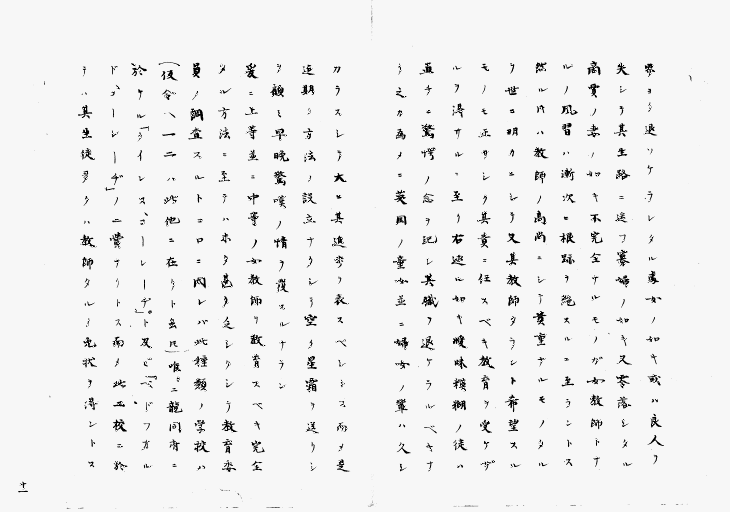 界ヨリ退ソケラレタル處女ノ如キ或ハ良人ヲ
失シテ其生路ニ迷フ寡婦ノ如キ又零落シタル
商賈ノ妻ノ如キ不完全ケルモノガ女教師トナ
ルノ風習ハ漸次ニ根跡ヲ絶スルニ至ラントス
然ル片ハ教師ノ高尚ニシテ貴重ナルモノタル
ヲ世ニ明カニシテ又其教師タラント希望スル
モノモ正サシク其責ニ任スベキ教育ヲ受ケザ
ルヲ得サルニ至リ右述ル如キ曖昧模糊ノ徒ハ
直チニ驚愕ノ念ヲ記シ其職ヲ退ケラルベキナ
リ之カ為メニ英国ノ童女並ニ婦女ノ輩ハ久シ
カラスシテ大ニ其進歩ヲ表スベシシス而メ是
迠期ル方法ノ設立ナクシテ空ク星霜ヲ送リシ
ヲ顧ミ早晩驚嘆ノ情ヲ發スルナラン
爰ニ上等並ニ中等ノ女教師ヲ教育スベキ完全
タル方法ニ至テハホタ甚タ乏シクシテ教育委
員ノ調査スルトコロニ因レバ此種類ノ学校ハ
(仮令ヘ一二ハ此他ニ在リト虽𪜈)唯ニ龍同府ニ
於ケル「クインスゴーレーヂ」ト及ビ「ベドフオル
ドゴーレーヂ」ノ二黌ナリトス而メ此二校ニ於
テハ其生徒多クハ教師タルノ免状ヲ得ントス
十一